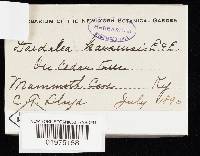 HERBARIUM OF THE NEW YORK BOTANICAL GARDEN
Daedalea Kansensis E & E
On Cedar Tree
Mammoth Cave Ky
C. G. Lloyd July 1890
NEW YORK BOTANICAL GARDEN
01975158